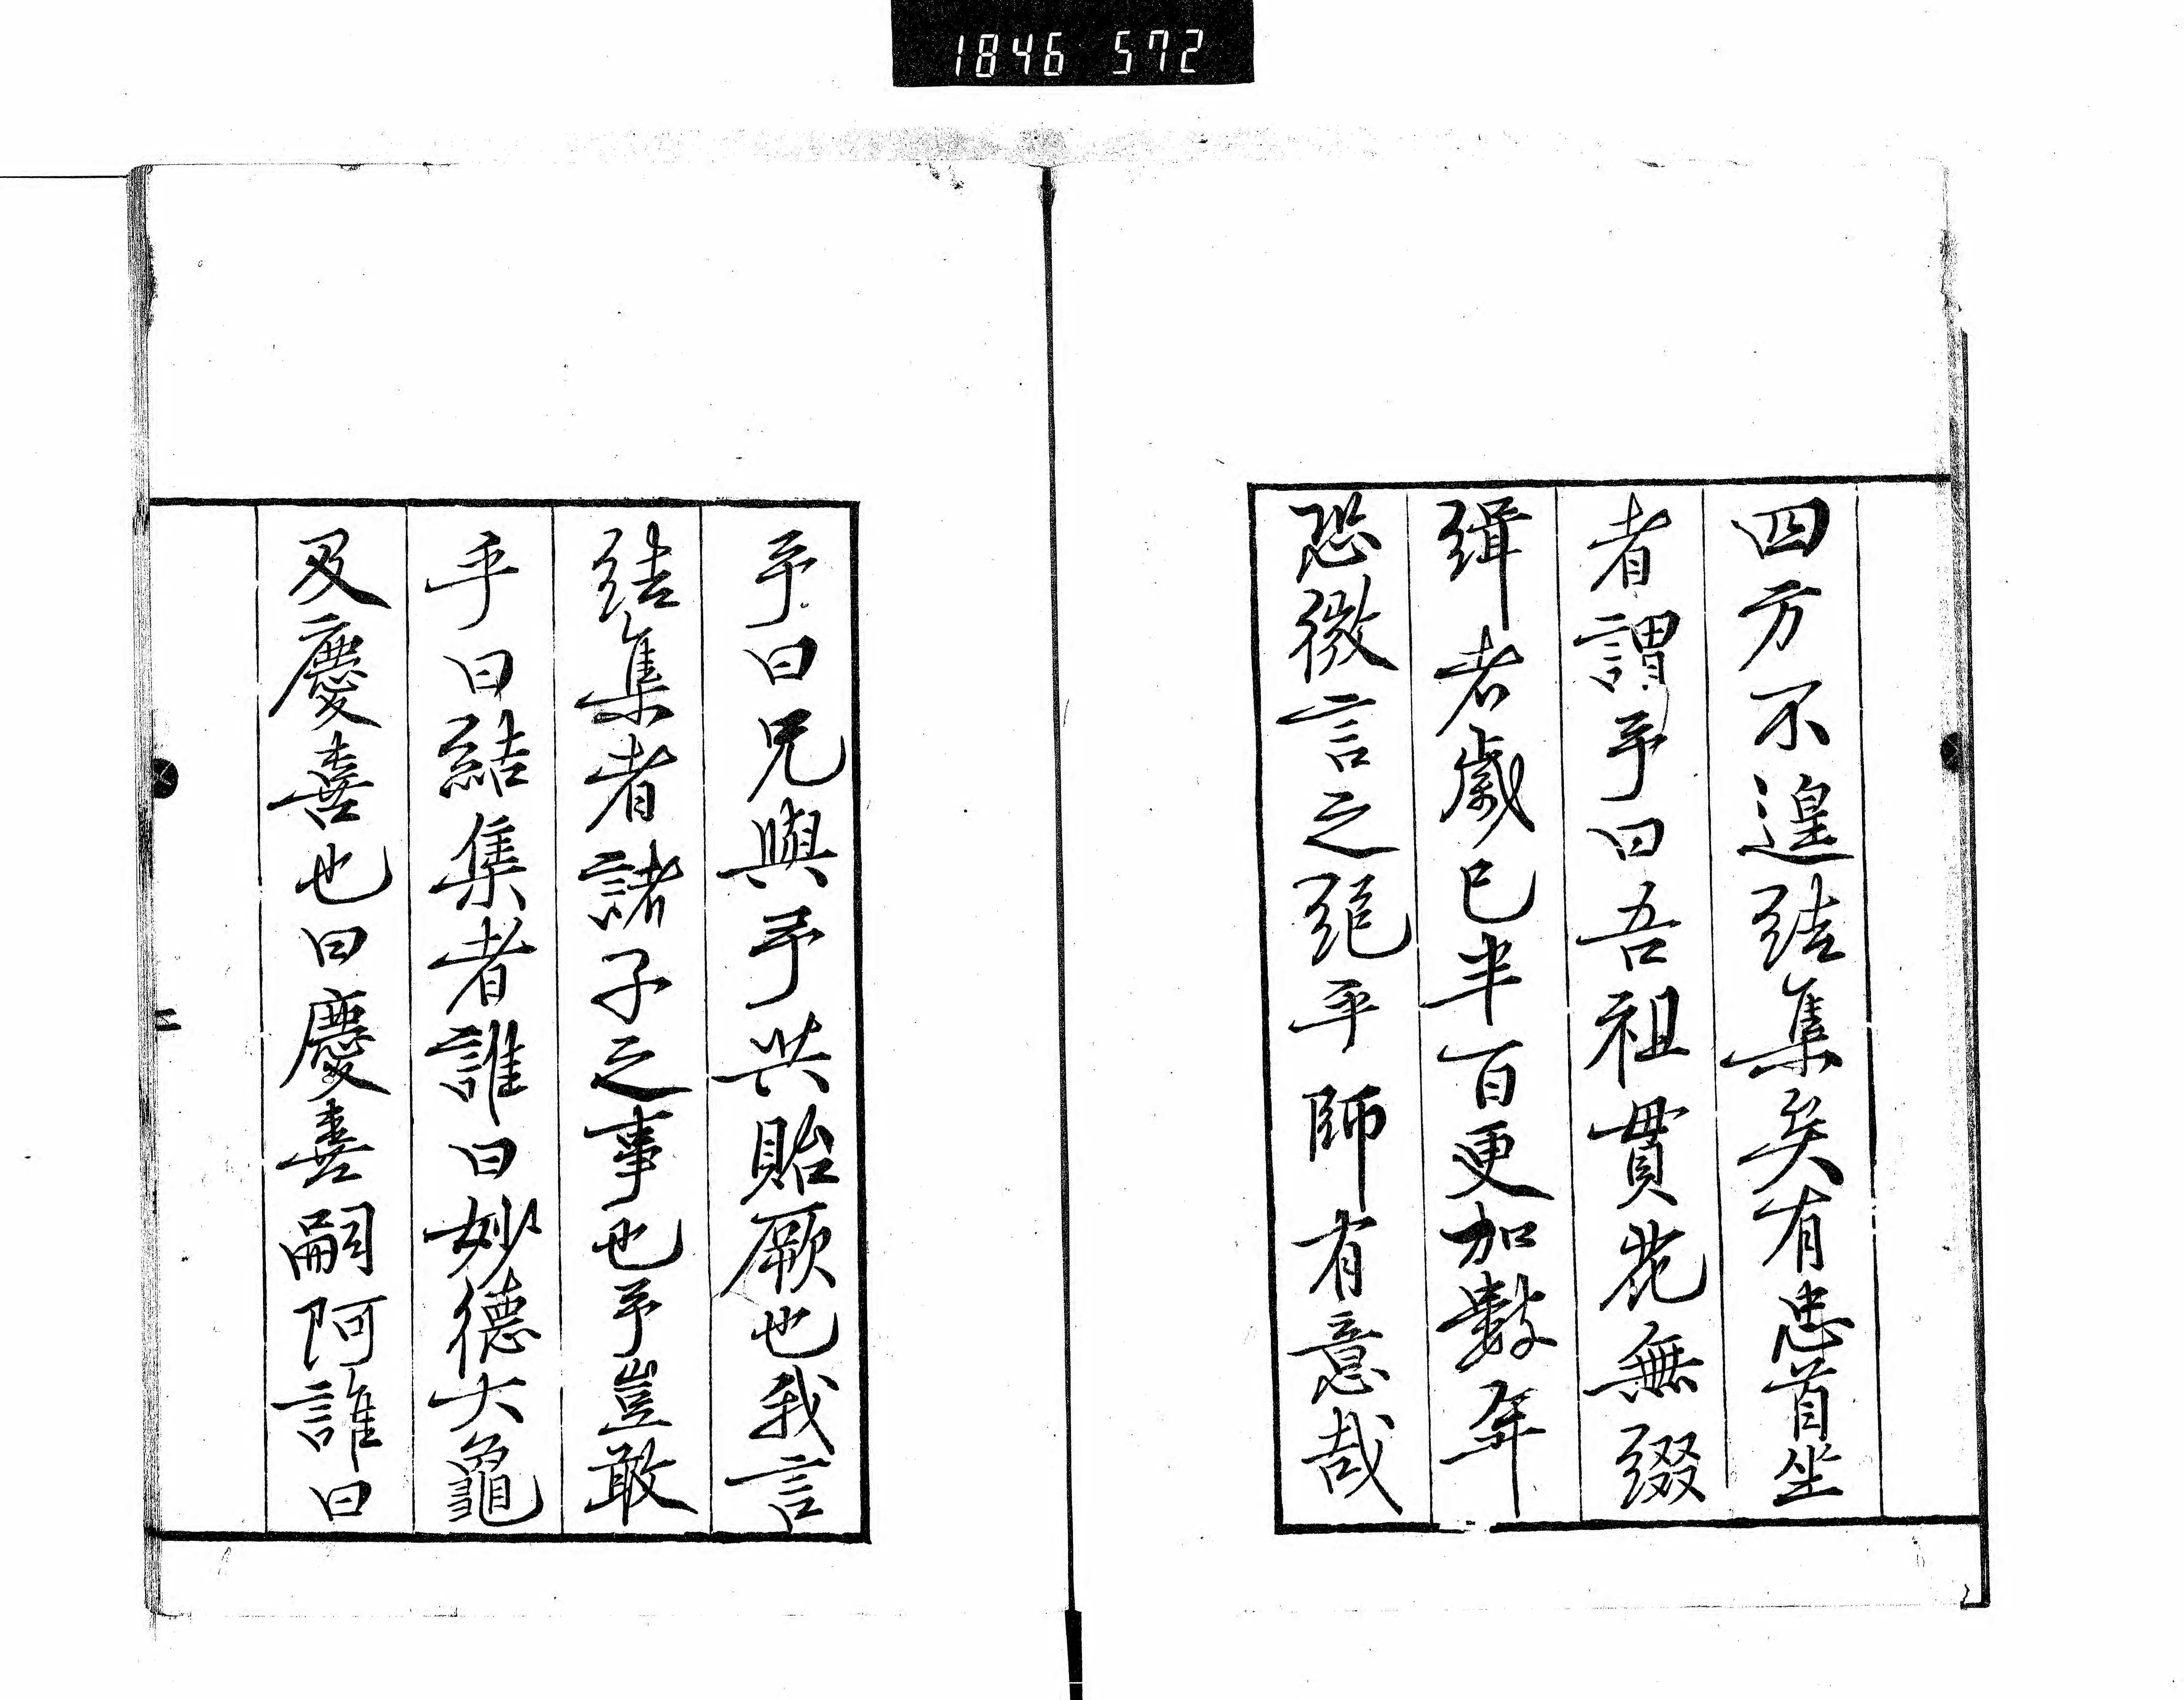 1846 572
四方不遑結集矣有忠首坐
者謂予曰吾祖貫花無綴
緝者歳已半百更加數年
恐微言之絕乎師有意哉
予曰兄與予共貽厥也我言
結集者諸子之事也予豈敢
乎曰結集者誰曰妙德大龜
及慶喜也曰慶喜嗣阿誰曰
二